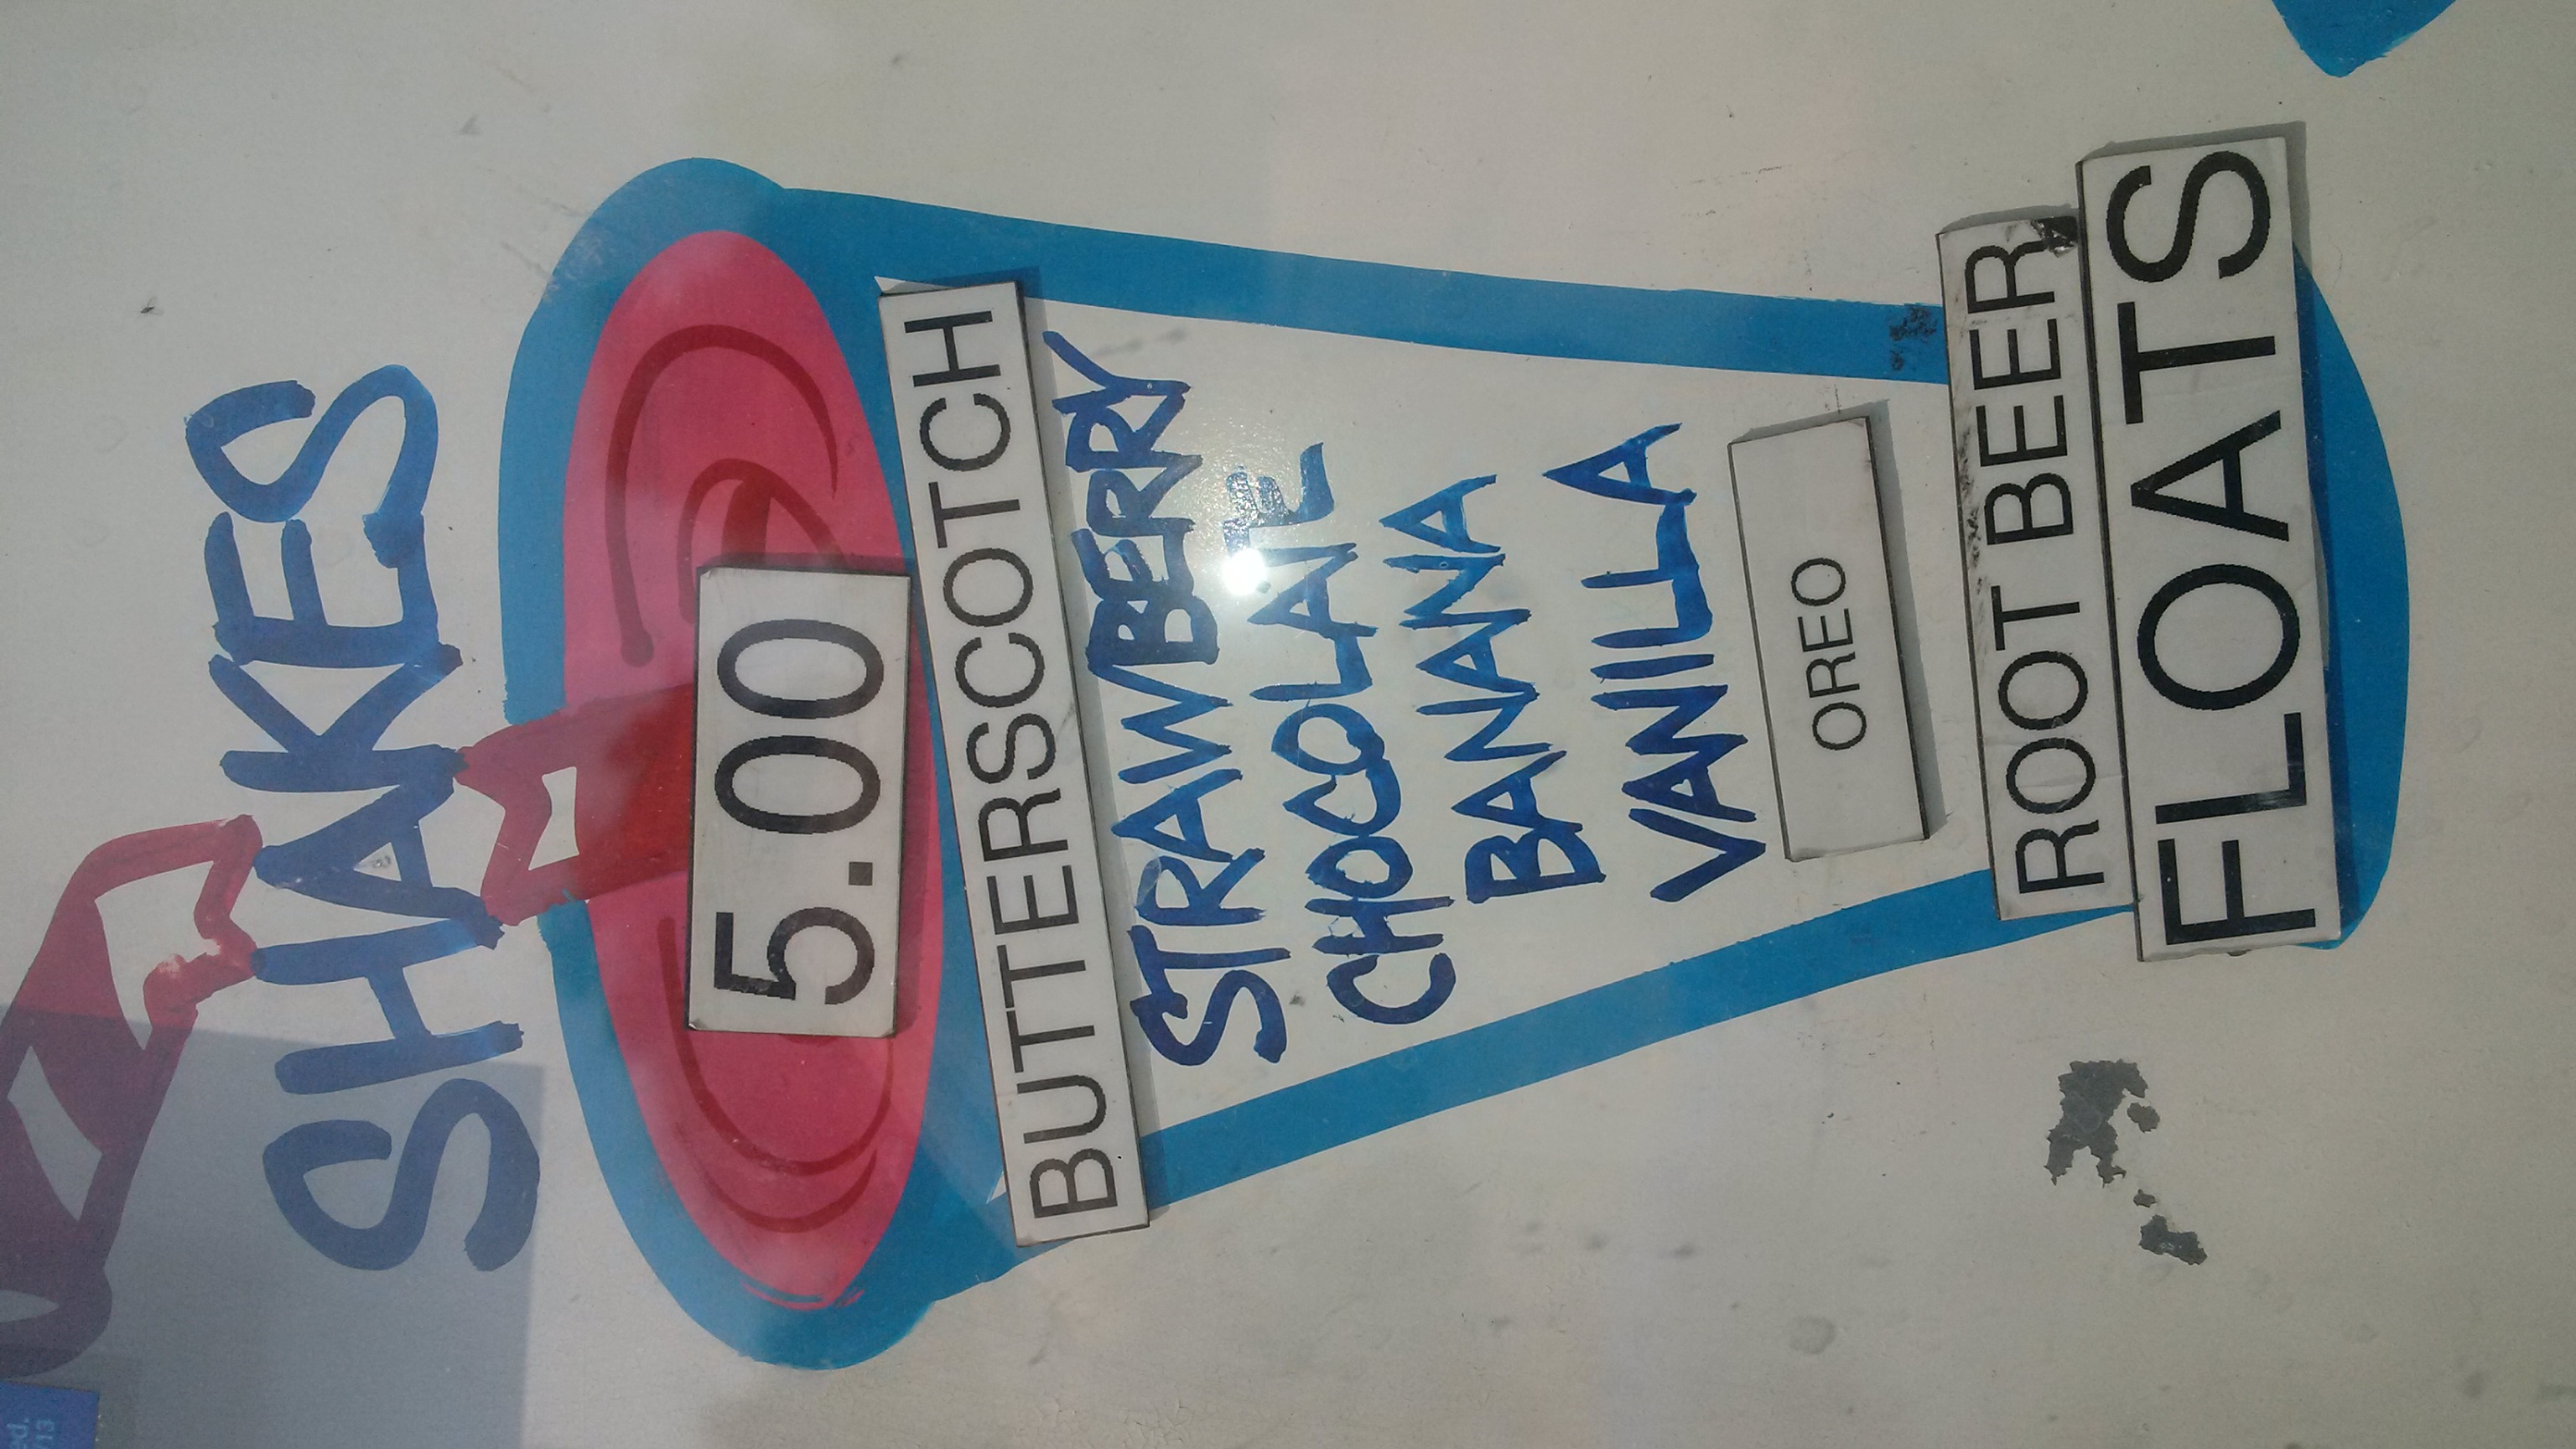 ed.
/13
SHAKES
5.00
BUTTERSCOTCH
STRAWBERRY
CHOCOLATE
BANANA
VANILLA
OREO
ROOT BEER
FLOATS